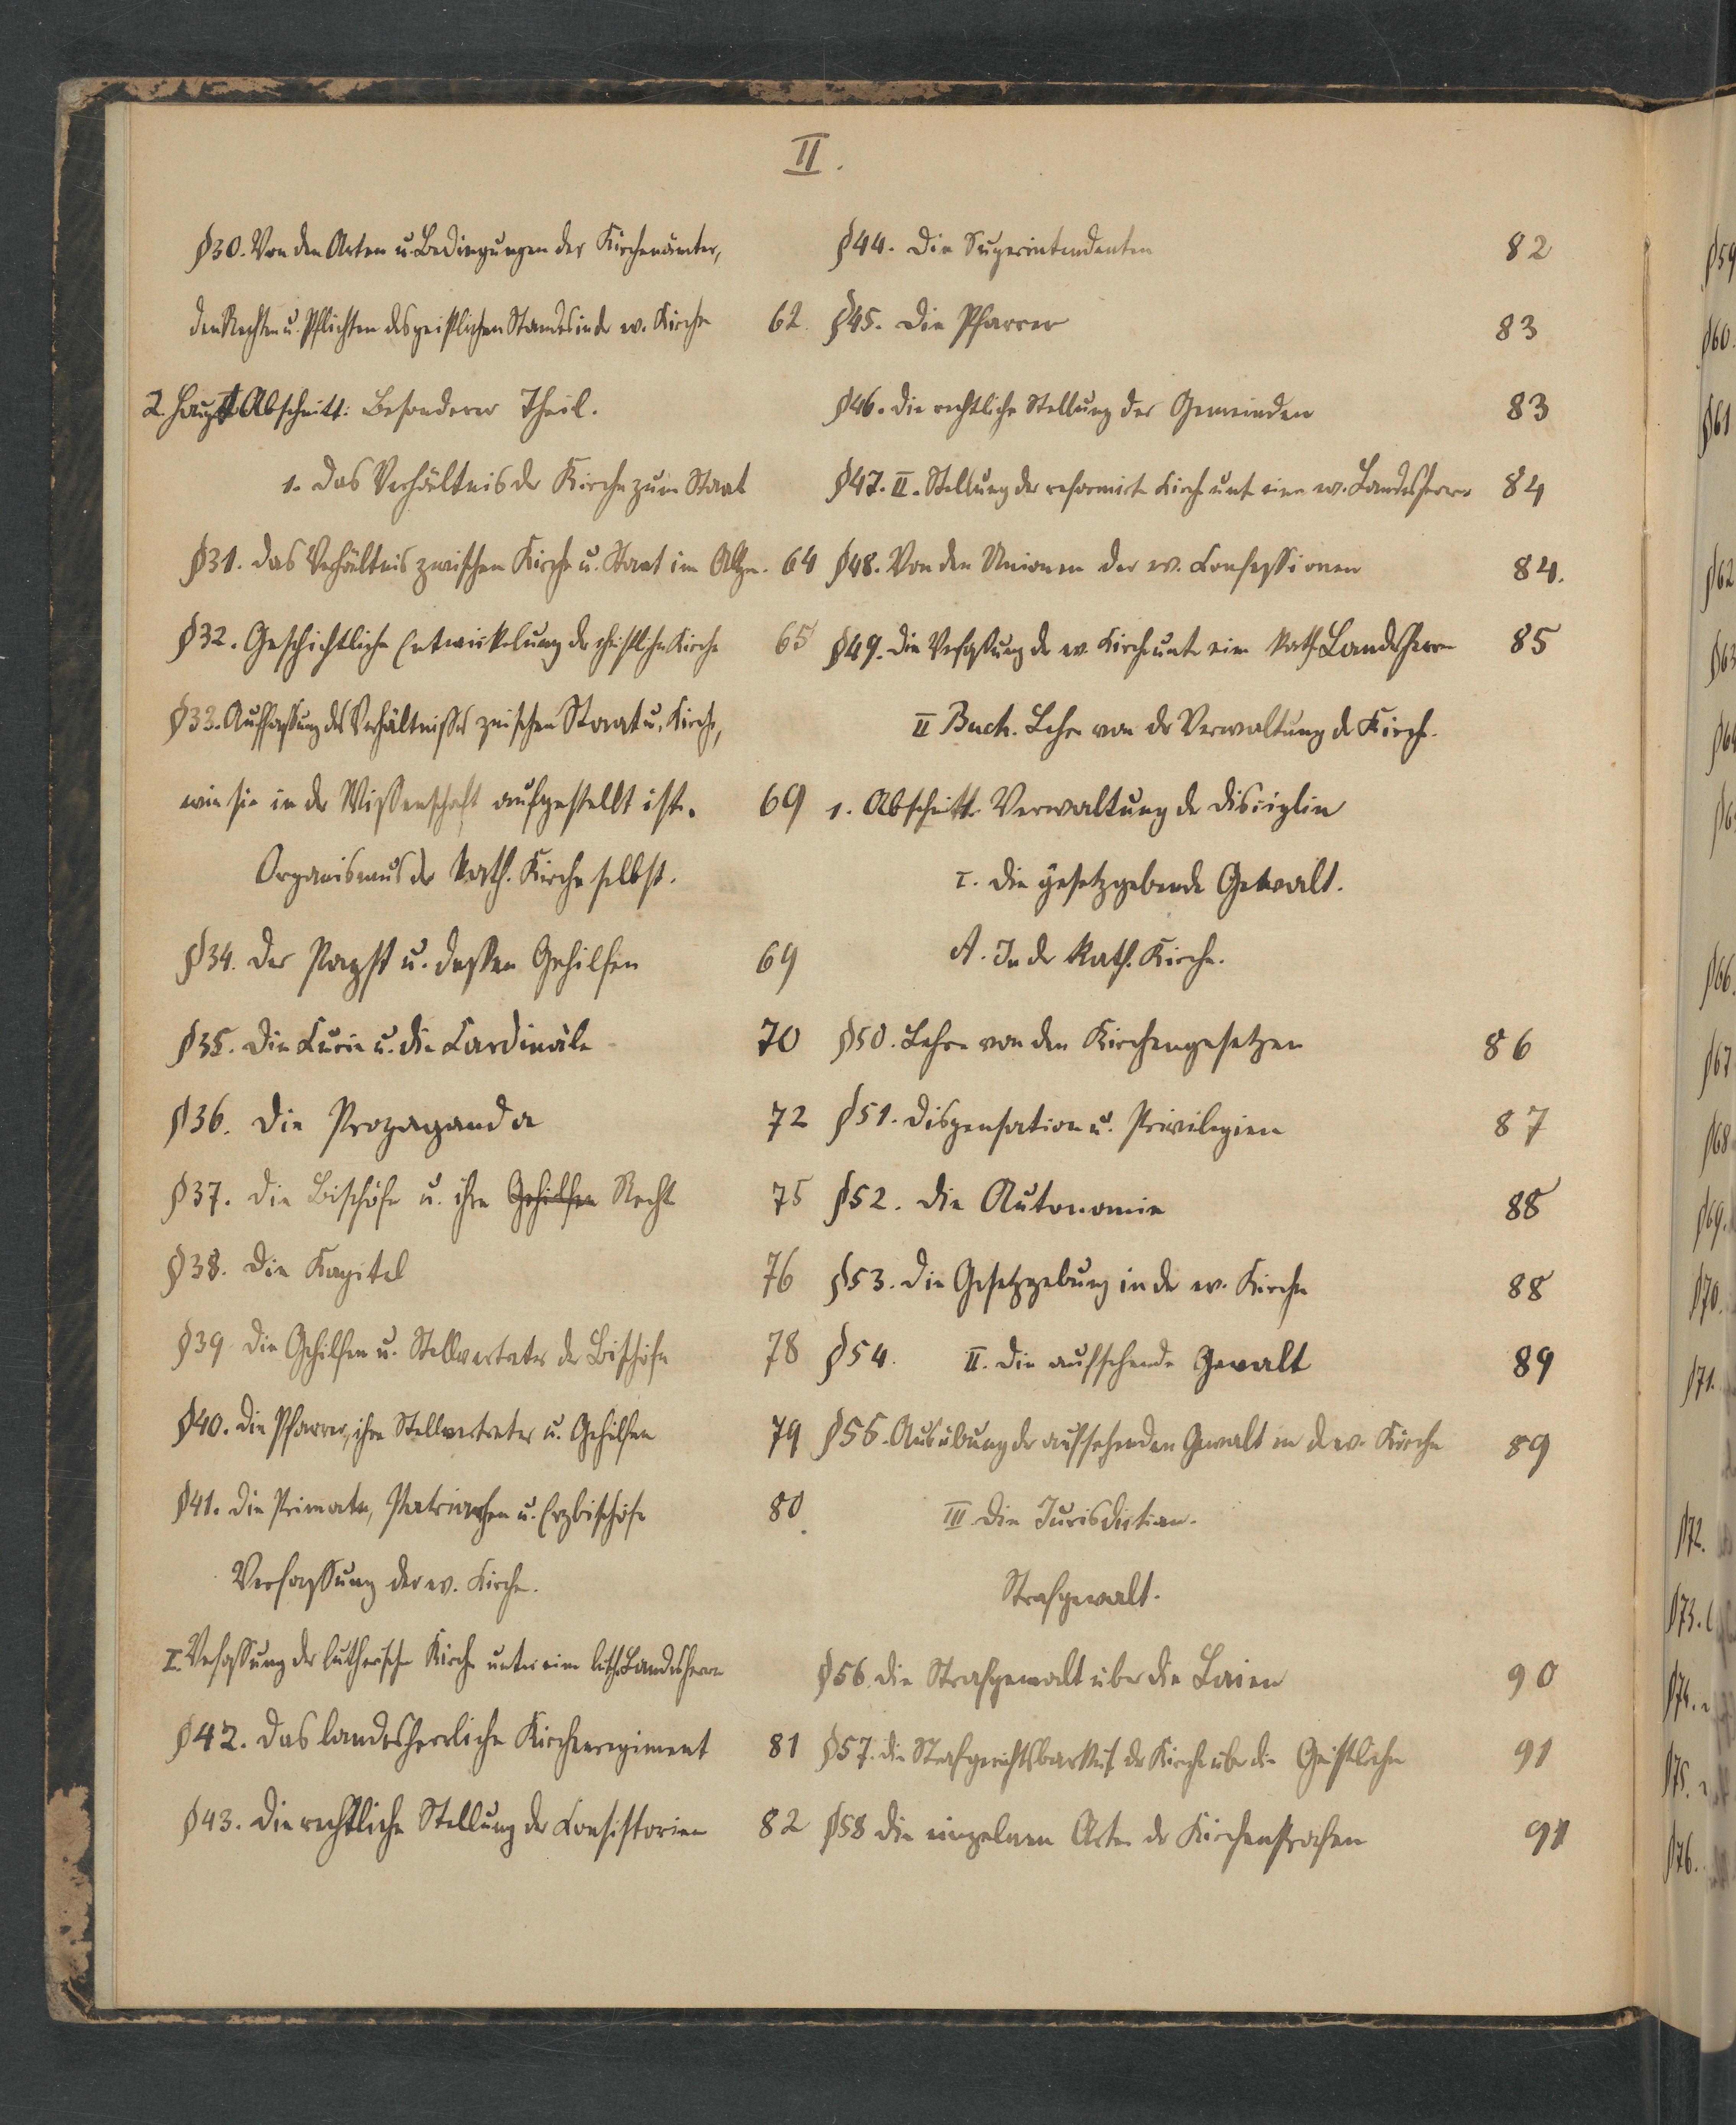 II.
§30. Von den Arten u. Bedingungen der Kirchenämter,
den Rechten u. Pflichten des geistlichen Standes in der ev. Kirche 62.
2. Haupt Abschnitt: Besonderer Theil.
1. Das Verhältnis der Kirche zum Staat
§31. Das Verhältnis zwischen Kirche u. Staat im Allgm. 64
§32. Geschichtliche Entwickelung der christlichen Kirche 65
§33. Auffassung des Verhältnisses zwischen Staat u. Kirche,
wie sie in der Wissenschaft aufgestellt ist. 69
Organismus der kath. Kirche selbst.
§34. Der Papst u. dessen Gehilfen 69
§35. Die Curie u. die Cardinäle 70
§36. Die Propaganda 72
§37. Die Bischöfe u. ihre Gehilfen Recht 75
§38. Die Kapitel 76
§39 Die Gehilfen u. Stellvertreter der Bischöfe 78
§40. Die Pfarrer, ihre Stellvertreter u. Gehilfen 79
§41. Die Primate, Patriarchen u. Erzbischöfe 80.
Verfassung der ev. Kirche.
I. Verfassung der lutherische Kirche unter eine luth. Landesherrn
§42. Das landesherrliche Kirchenregiment 81
§43. Die rechtliche Stellung der Consistorien 82
§44. Die Superintendenten 82
§45. Die Pfarrer 83
§46. Die rechtliche Stellung der Gemeinden 83
§47. II. Stellung der reformirte Kirche unt. eine ev. Landesherrn 84
§48. Von den Unionen der ev. Confessionen 84.
§49. Die Verfassung der ev. Kirche unte eine kath. Landesherrn 85
II Buch. Lehre von der Verwaltung der Kirche.
1. Abschnitt. Verwaltung der Disciplin
I. Die gesetzgebende Gewalt.
A. In der kath. Kirche.
§50. Lehre von den Kirchengesetzen 86
§51. Dispensation u. Privilegien 87
§52. Die Autonomie 88
§53. Die Gesetzgebung in der ev. Kirche 88
§54. II. Die aufsehende Gewalt 89
§55. Ausübung der aufsehenden Gewalt in der ev. Kirche 89
III. Die Jurisdiction.
Strafgewalt.
§56. Die Strafgewalt über die Laien 90
§57. Die Strafgerichtsbarkeit der Kirche über die Geistlichen 91
§58 Die einzelnen Arten der Kirchenstrafen 91
§59
§60.
§61
§62
§63
§64
§66.
§67
§68
§69.
§70.
§71.
§72.
§73.
§74.
§75.
§76.